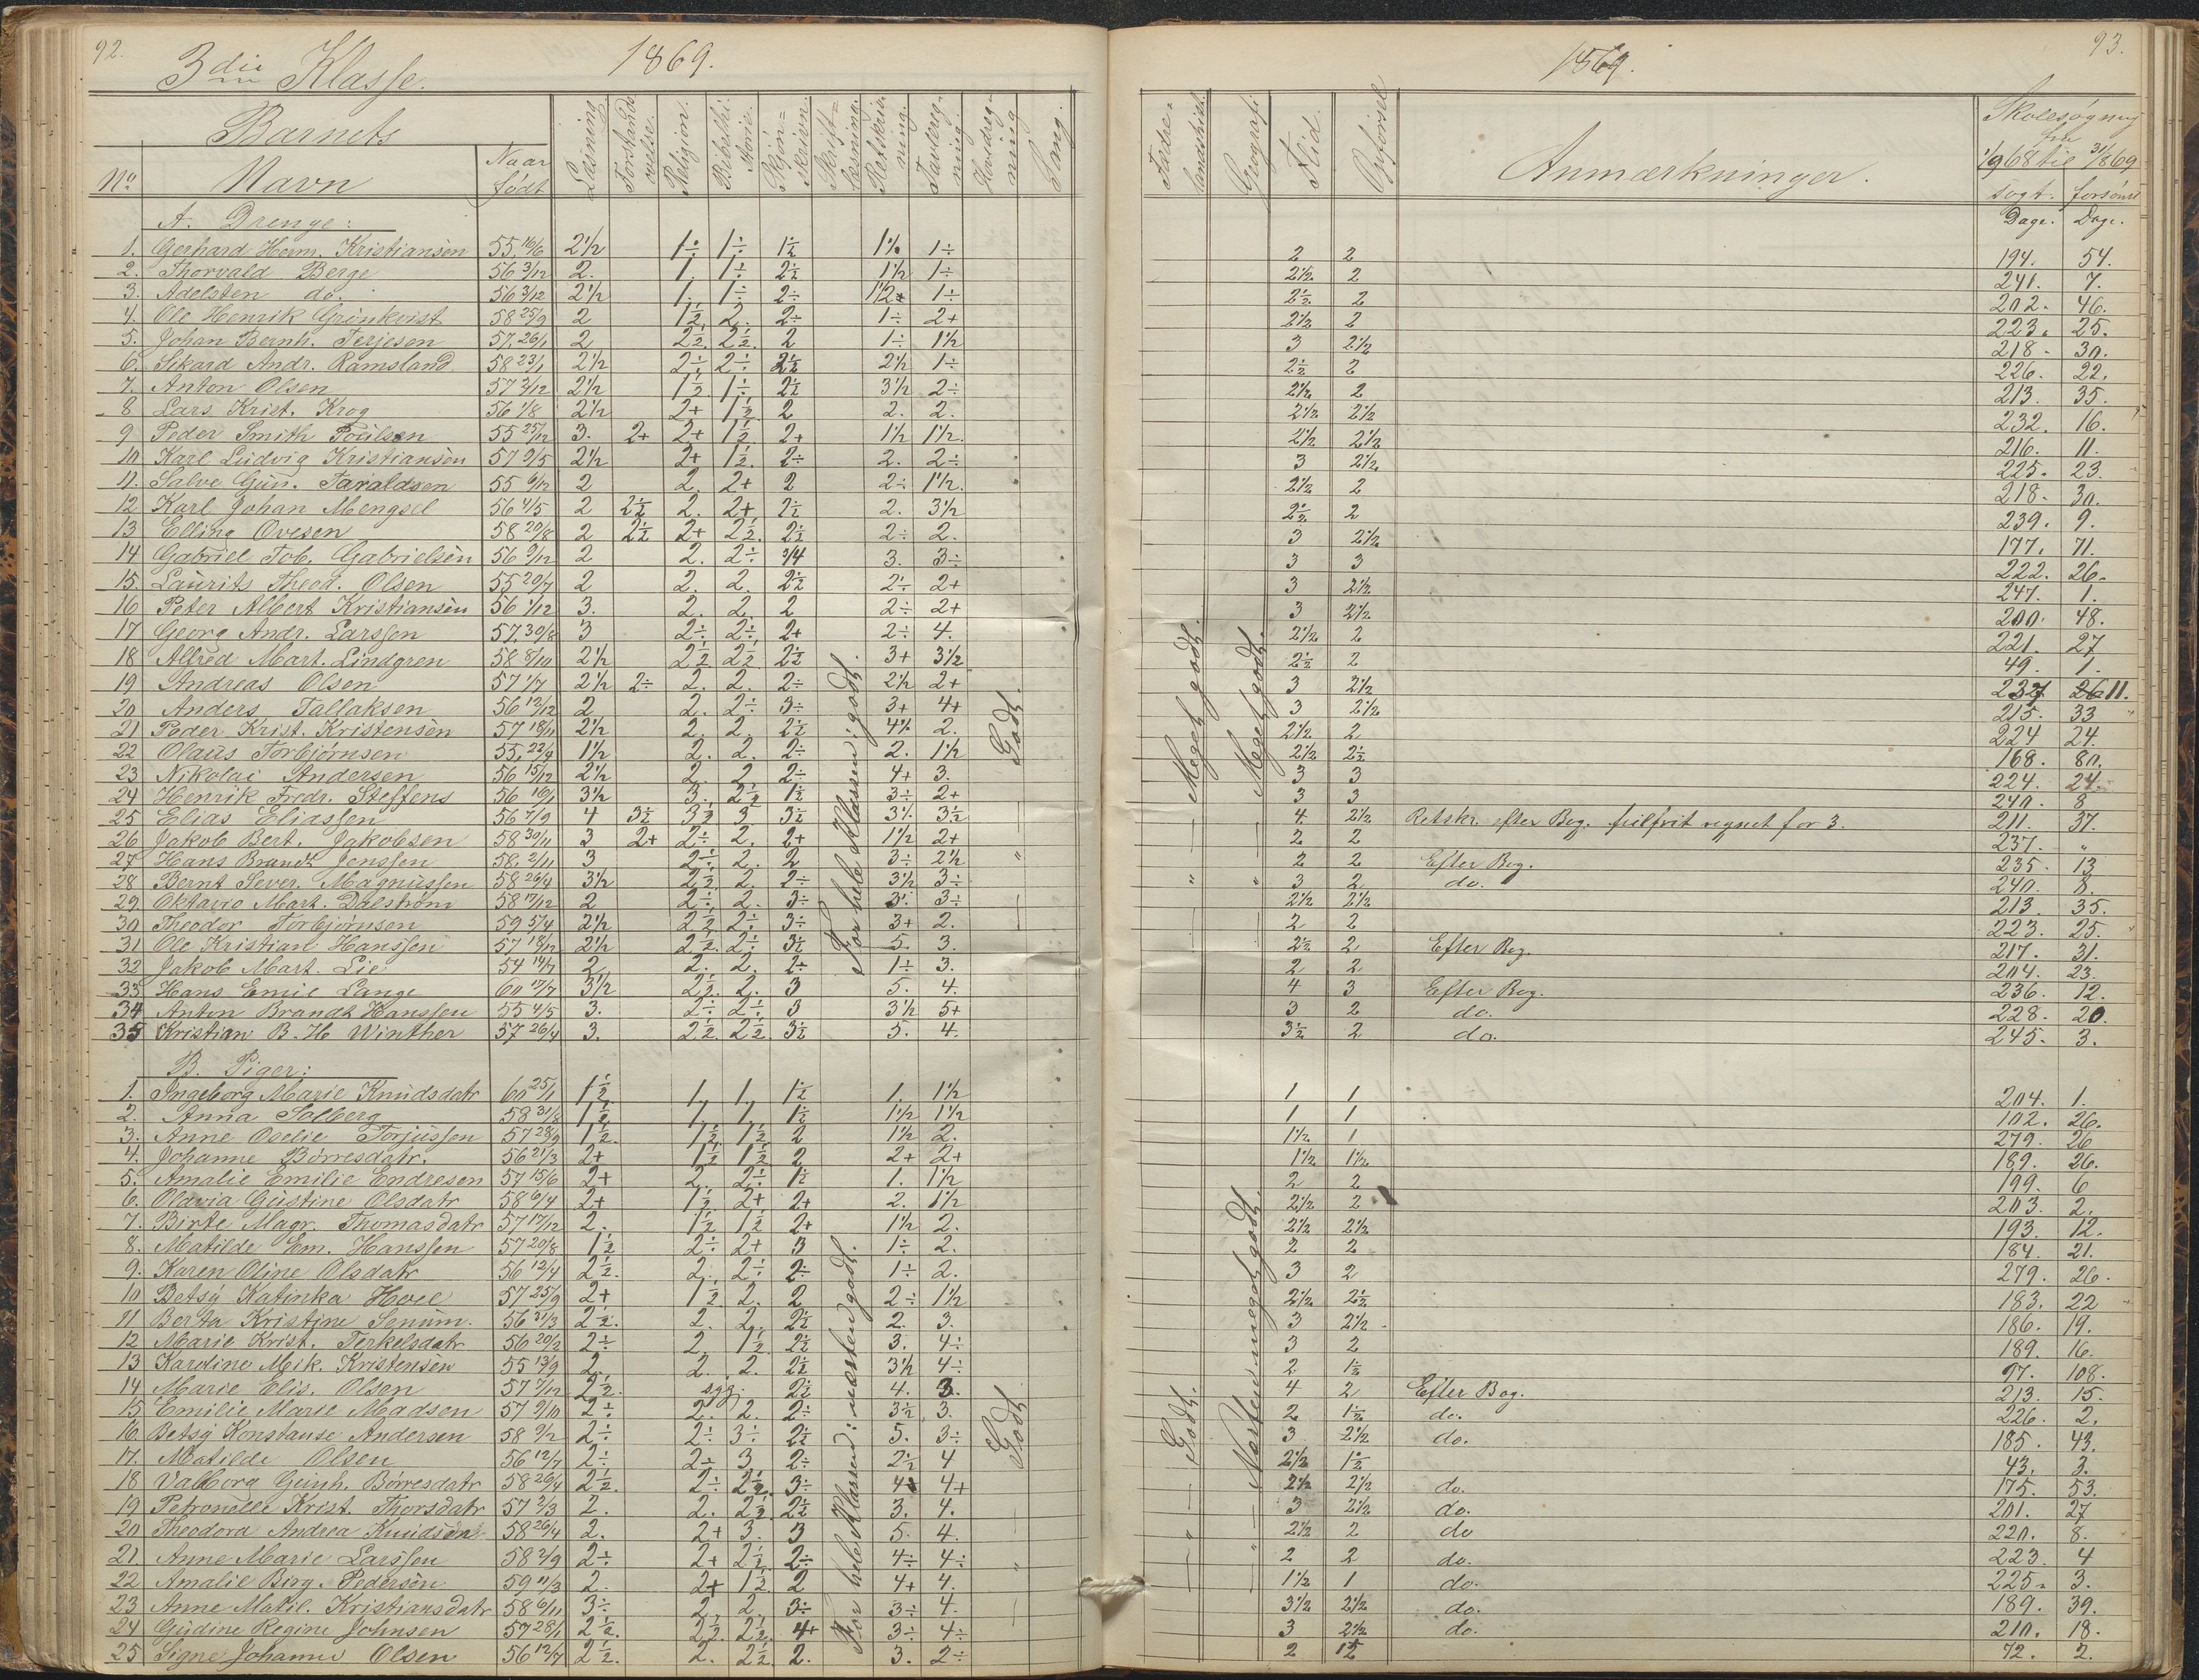 92.
3die Klasse.
1869.
Barnets
No Navn
Naar født
Læsning.
Forstands øvelse.
Religion.
Bibelhi storie.
Skjøn= skrivn.
Skrift= læsning.
Retskriv ning.
Tavlereg= ning.
Hovedreg= ning
Sang.
A. Drenge:
1. Gerhard Herm. Kristiansen 55 16/6 2½ 1÷ 1÷ 1½ 1½ 1÷
2. Thorvald Berge 56 3/12 2. 1. 1÷ 2½ 1½ 1÷
3. Adelsten do. 56 3/12 2½ 1. 1÷ 2÷ 1½+ 1÷
4. Ole Henrik Grönkvist 58 25/9 2 1½ 2. 2÷ 1÷ 2+
5. Johan Bernh. Terjesen 57. 26/1 2 2½ 2½ 2 1÷ 1½
6. Sikard Andr. Ramsland 58 23/1 2½ 2÷ 2÷ 2½ 2½ 1÷
7. Anton Olsen 57 3/12 2½ 1½ 1÷ 2½ 3½ 2÷
8 Lars Krist. Krog 56 1/8 2½ 2+ 1½ 2 2. 2.
9 Peder Smith Poulsen 55 25/12 3. 2+ 2+ 1½ 2+ 1½ 1½.
10 Karl Ludvig Kristiansen 57 9/5 2½ 2+ 1½. 2÷ 2. 2÷
11. Salve Gun. Taraldsen 55 6/12 2 2. 2+ 2 2÷ 1½.
12 Karl Johan Mengsel 56 4/5 2 2½ 2. 2+ 2½ 2. 3½
13 Elling Ovesen 58 20/8 2 2½ 2+ 2½. 2½ 2÷ 2.
14 Gabriel Tob. Gabrielsen 56 9/12 2 2. 2÷ 3/4 3. 3÷
15. Laurits Theod. Olsen 55 20/7 2 2. 2. 2½ 2÷ 2+
16 Peter Albert Kristiansen 56 1/12 3. 2. 2. 2 2÷ 2+
17 Georg Andr. Larssen 57. 30/8 3 2÷ 2÷ 2+ 2÷ 4.
18 Alfred Mart. Lindgren 58 8/10 2½ 2½ 2½ 2½ 3+ 3½
19 Andreas Olsen 57 1/7 2½ 2÷ 2. 2. 2÷ 2½ 2+
20 Anders Tallaksen 56 12/12 2 2. 2÷ 3÷ 3+ 4+
21 Peder Krist. Kristensen 57 18/11 2½ 2. 2. 2½ 4½ 2.
22 Olaus Torbjørnsen 55. 22/9 1½ 2. 2. 2÷ 2. 1½
23 Nikolai Andersen 56 15/12 2½ 2. 2 2÷ 4+ 3.
24 Henrik Fredr. Steffens 56 16/1 3½ 3. 2½ 1½ 3÷ 2+
25 Elias Eliassen 56 7/9 4 3½ 3½ 3 3½ 3½ 3½
26 Jakob Bert. Jakobsen 58 30/11 3 2+ 2÷ 2. 2+ 1½ 2+
27 Hans Brandt Jenssen 58. 2/11 3 2½ 2. 2 3÷ 2½
28 Bernt Sever. Magnussen 58 26/4 3½ 2½ 2. 2÷ 3½ 3÷
29. Oktavio Mart. Dalstrøm 58 17/12 2 2÷ 2. 3÷ 3÷ 3÷
30 Theodor Torbjørnsen 59 5/4 2½ 2½ 2÷ 3÷ 3+ 2.
31 Ole Kristian Hanssen 57 18/12 2½ 2½. 2÷ 3½ 5. 3.
32 Jakob Mart. Lie 54 14/7 2 2. 2. 2÷ 1÷ 3.
33 Hans Emil Lange 60 17/7 3½ 2½. 2. 3 5. 4.
34 Anton Brandt Hanssen 55 4/5 3. 2÷ 2÷ 3 3½ 5+
35 Kristian B. H Winther 57 26/4 3. 2½. 2½. 3½ 5. 4.
For hele Klassen: godt.
Godt.
B. Piger:
1. Ingeborg Marie Knudsdatr 60 25/1 1½ 1. 1. 1½ 1. 1½
2. Anna Solberg 58 31/8 1½ 1. 1. 1½ 1½ 1½
3. Anne Oselie Torjussen 57 28/9 1½. 1½. 1½ 2 1½ 2.
4. Johanne Børresdatr. 56 21/3 2+ 1½ 1½ 2 2+ 2+
5. Amalie Emilie Endresen 57 15/6 2+ 2. 2÷ 1½ 1. 1½
6. Olavia Gustine Olsdatr 58 6/4 2+ 1½ 2+ 2+ 2. 1½
7. Birte Magr. Thomasdatr 57 17/12 2. 1½ 1½ 2+ 1½ 2.
8. Matilde Em. Hanssen 57 20/8 1½ 2÷ 2+ 3 1÷ 2.
9. Karen Oline Olsdatr 56 12/4 2½. 2. 2÷ 2÷ 1÷ 2.
10 Betsy Katinka Hoel 57 25/9 2+ 1½ 2. 2 2÷ 1½
11 Berta Kristine Senum. 56 31/3 2½. 2. 2. 2½ 2. 3.
12 Marie Krist. Terkelsdatr 56 20/2 2÷ 2. 1½ 2½ 3. 4÷
13 Karoline Mik. Kristensen 55 13/9 2. 2. 2. 2½ 3½ 4÷
14 Marie Elis. Olsen 57 7/12 2½. syg. 2½ 4. 3.
15 Emilie Marie Madsen 57 9/10 2÷ 2. 2. 2÷ 3½ 3.
16 Betsy Konstanse Andersen 58 9/2 2÷ 2÷ 3÷ 2½ 5. 3÷
17. Matilde Olsen 56 12/7 2÷ 2÷ 3 2÷ 2½ 4
18 Valborg Gunh. Børresdatr 58 26/4 2½. 2÷ 2½. 3÷ 4+ 4+
19 Petronelle Krist. Thorsdatr 57 2/3 2. 2. 2½ 2½ 3. 4.
20 Theodora Andrea Knudsen 58 26/4 2. 2+ 3. 3 5. 4.
21. Anne Marie Larssen 58 2/9 2÷ 2+ 2½ 2÷ 4÷ 4÷
22 Amalie Birg. Pedersen 59 11/3 2. 2+ 1½. 2 4+ 4.
23 Anne Matil. Kristiansdatr 58 6/11 3÷ 2. 2. 3÷ 3÷ 4.
24 Gudine Regine Johnsen 57 28/1 2½. 2½. 2½. 4+ 3÷ 4÷
25 Signe Johanne Olsen 56 12/7 2½. 2. 2½. 2. 3. 2÷
For hele Klassen: næsten godt.
Godt.
1869.
93.
Fædre= landshist.
Geografi.
Flid.
Opførsel
Anmærkninger.
Skolesøgning fra 1/9 68 til 31/8 69
søgt. forsømt
Dage. Dage.
2 2 194. 54.
2½ 2 241. 7.
2½ 2 202. 46.
2½ 2 223. 25.
3 2½ 218. 30.
2½ 2 226. 22.
2½ 2 213. 35.
2½ 2½ 232. 16.
2½ 2½ 216. 11.
3 2½ 225. 23.
2½ 2 218. 30.
2½ 2 239. 9.
3 2½ 177. 71.
3 3 222. 26.
3 2½ 247. 1.
3 2½ 200. 48.
2½ 2 221. 27
2½ 2 49. 1.
3 2½ 237 26 11.
3 2½ 215. 33
2½ 2 224 24.
2½ 2½ 168. 80.
3 3 224. 24.
3 3 240. 8
4 2½ Retskr. efter Bog. feilfrit regnet for 3. 211. 37.
2 2 237. "
2 2 Efter Bog. 235. 13
3 2 do. 240. 8.
2½ 2½ 213. 35.
2 2 223. 25.
2½ 2 Efter Bog. 217. 31.
2 2 204. 23.
4 3 Efter Bog. 236. 12.
3 2 do. 228. 20.
3½ 2 do. 245. 3.
Meget godt.
Meget godt.
1 1 204. 1.
1 1 102. 26.
1½ 1 279. 26
1½ 1½ 189. 26.
2 2 199. 6
2½ 2 203. 2.
2½ 2½ 193. 12.
2 2 184. 21.
3 2 279. 26.
2½ 2½ 183. 22
3 2½ 186. 19.
3 2 189. 16.
2 1½ 97. 108.
4 2 Efter Bog. 213. 15.
2 1½ do. 226. 2.
3 2½ do. 185. 43.
2½ 1½ 43. 3.
2½ 2½ do. 175. 53.
3 2½ do. 201. 27
2½ 2 do 220. 8.
2 2 do. 223. 4
1½ 1 do. 225. 3.
3½ 2½ do. 189. 39.
3 2½ do. 210. 18.
2 1½ 72. 2.
Godt.
Næsten meget godt.